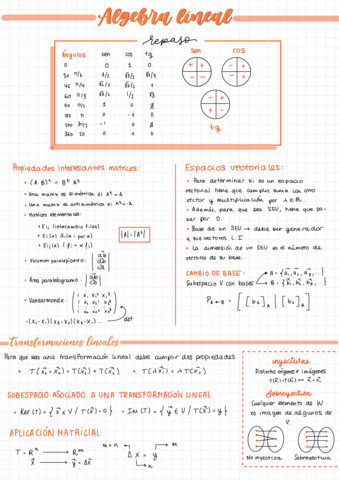 Algebra lineal
repaso
Ángulos sen cos tg
0 0 1 0
30 π/6 1/2 √3/2 √3/3
45 π/4 √2/2 √2/2 1
60 π/3 √3/2 1/2 √3
90 π/2 1 0 ∄
180 π 0 -1 0
270 3π/2 -1 0 ∄
360 2π 0 1 0
sen cos
+ + - +
- - - +
- +
+ -
tg
Propiedades interesantes matrices:
• (A·B)ᵗ = Bᵗ Aᵗ
• Una matriz es simétrica si Aᵗ = A
• Una matriz es antisimétrica si Aᵗ = -A
• Matrices elementales:
• Eij (intercambio filas)
• Ei(α) (fila i por α)
• Eij(α) (fi + α fj)
|A| = |Aᵗ|
• Volumen paralelepípedo:
• Área paralelogramo:
• Vandermonde:
1 x₁ x₁² x₁³
1 x₂ x₂² x₂³
1 x₃ x₃² x₃³
= (x₂-x₁)(x₃-x₂)(x₃-x₁)... → det
Espacios vectoriales:
• Para determinar si es un espacio
vectorial tiene que cumplir suma con otro
vector y multiplicación por λ ∈ ℝ.
• Además, para que sea SEV, tiene que pa-
sar por 0.
• Base de un SEV → debe ser generador
y sus vectores L.I.
• La dimensión de un SEV es el número de
vectores de su base.
CAMBIO DE BASE:
Subespacio V con bases
A = {a⃗₁, a⃗₂, a⃗₃, ...}
B = {b⃗₁, b⃗₂, b⃗₃, ...}
P_A←B = [ [b₁]_A | [b₂]_A ]
Transformaciones lineales
Para que sea una transformación lineal debe cumplir dos propiedades
• T(x⃗₁ + x⃗₂) = T(x⃗₁) + T(x⃗₂) • T(λx⃗₁) = λT(x⃗₁)
SUBESPACIO ASOCIADO A UNA TRANSFORMACIÓN LINEAL
• Ker(T) = {x⃗ ∈ V / T(x⃗) = 0} • Im(T) = {y⃗ ∈ V / T(x⃗) = y}
APLICACIÓN MATRICIAL
T = Rⁿ → Rᵐ
x⃗ → y⃗ = Ax⃗
m×n
A x = y
m
n
inyectiva:
Distintos orígenes ≠ imágenes
Sobreyectiva
Cualquier elemento de W
es imagen de algunos de
V.
No inyectiva Sobreyectiva